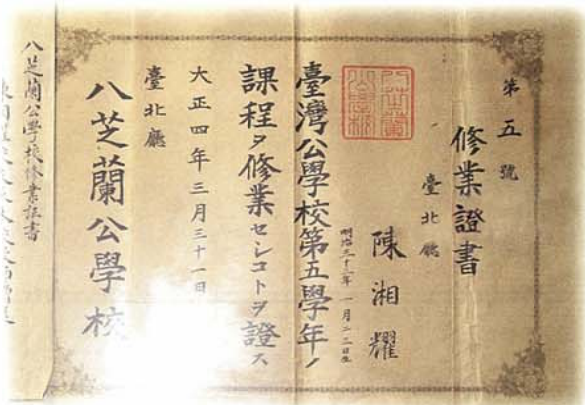 第五號
修業證書
臺北廳
陳湘耀
明治三十三年一月二十二日生
臺灣公學校第五學年ノ
課程ヲ修業セシコトヲ證ス
大正四年三月三十一日
臺北廳
八芝蘭公學校
八芝蘭公學校修業証書